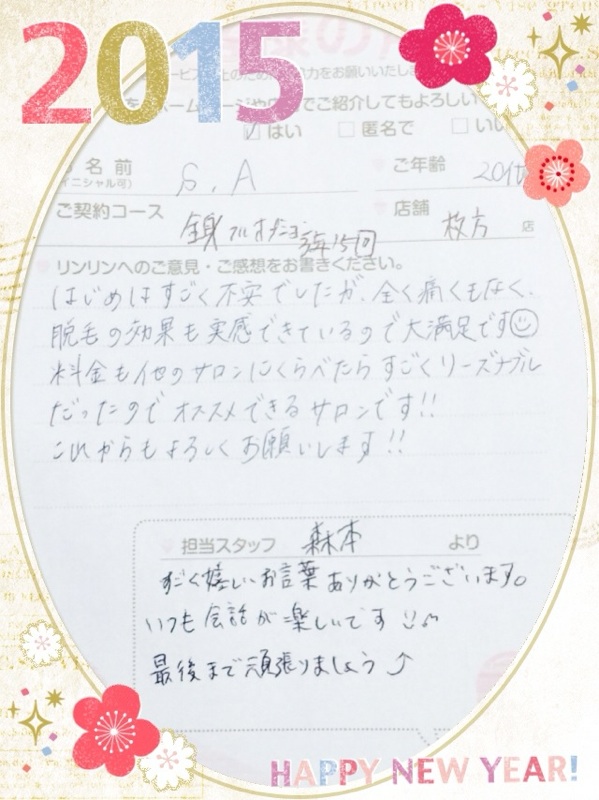 2015
をホームページや でご紹介してもよろしい
はい 匿名で いい
名前
(イニシャル可)
S.A
ご年齢 20代
ご契約コース
全身フルオプション 3年15回
店舗 枚方 店
リンリンへのご意見・ご感想をお書きください。
はじめはすごく不安でしたが、全く痛くもなく、
脱毛の効果も実感できているので大満足です
料金も他のサロンにくらべたらすごくリーズナブル
だったのでオススメできるサロンです!!
これからもよろしくお願いします!!
担当スタッフ 森本 より
すごく嬉しいお言葉ありがとうございます。
いつも会話が楽しいです
最後まで頑張りましょう
HAPPY NEW YEAR!